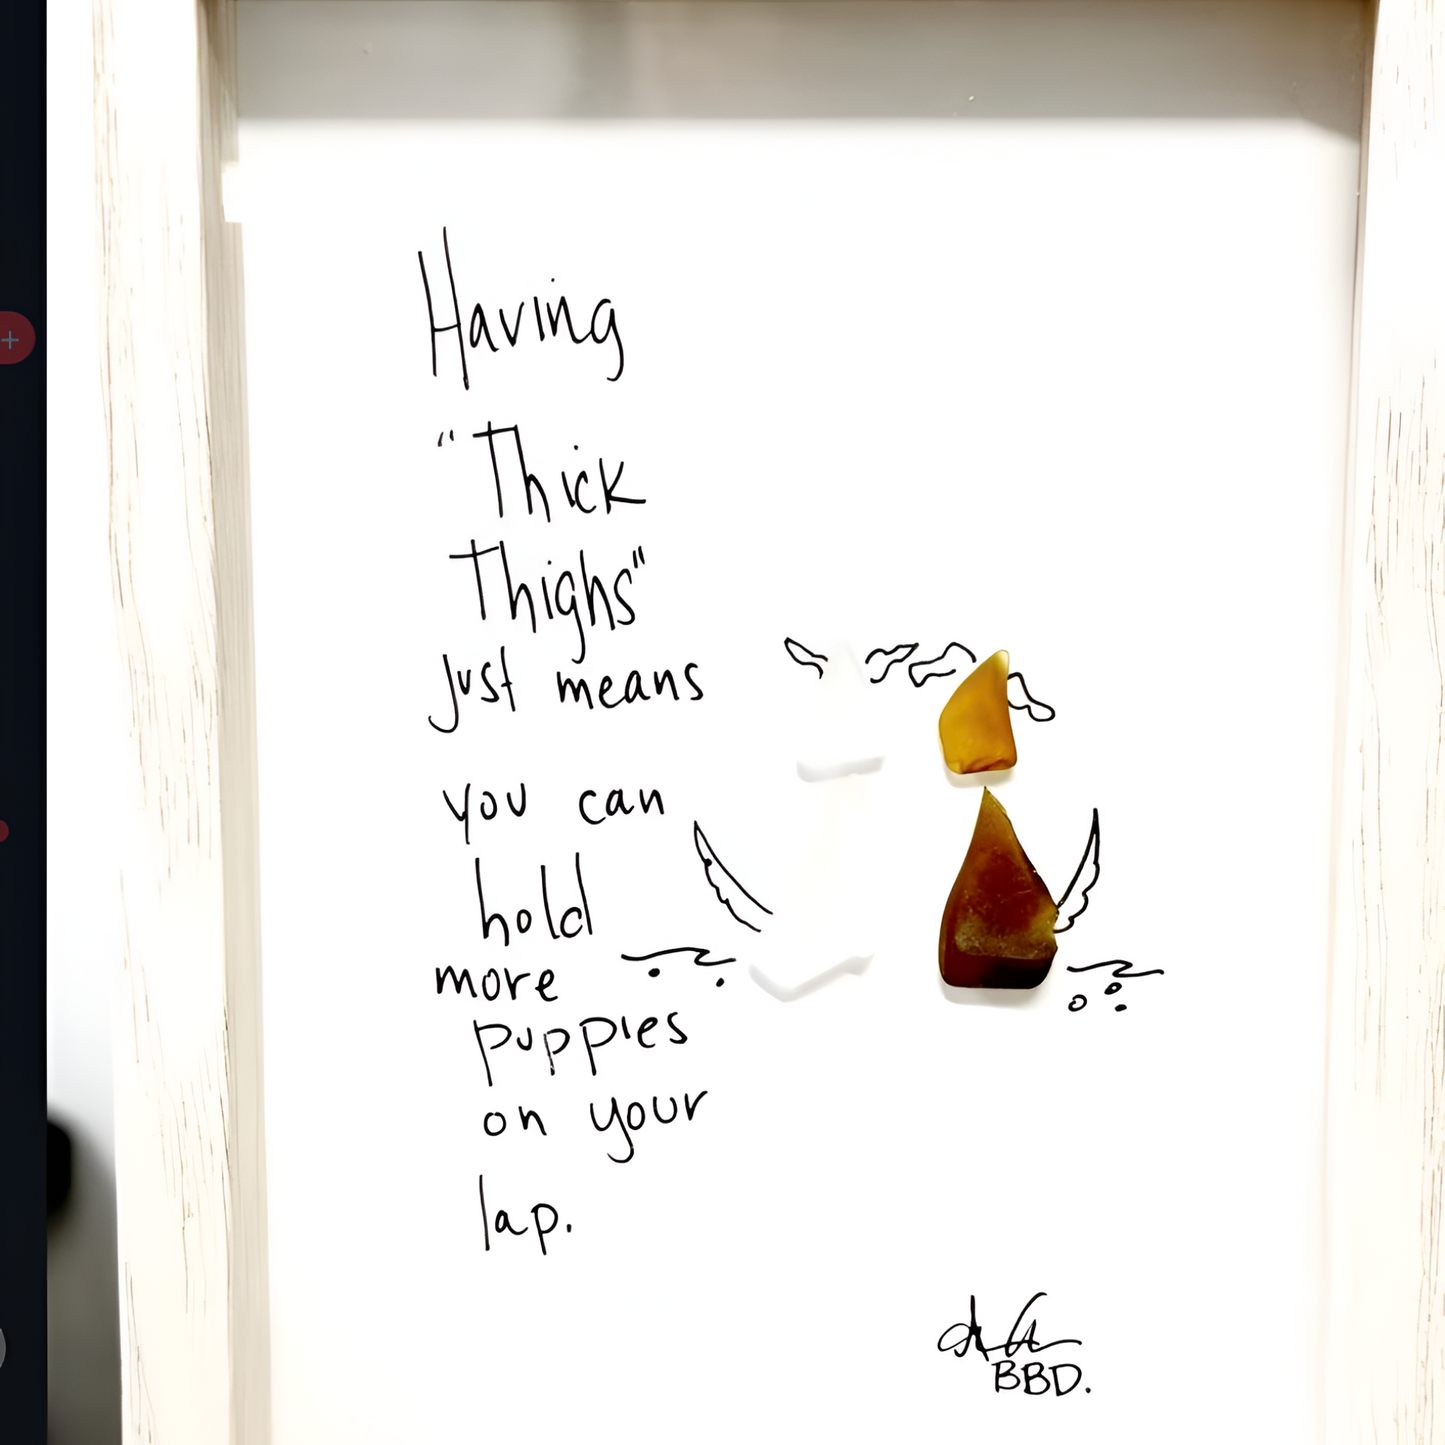 Having
"Thick
Thighs"
just means
you can
hold
more
puppies
on your
lap.
BBD.